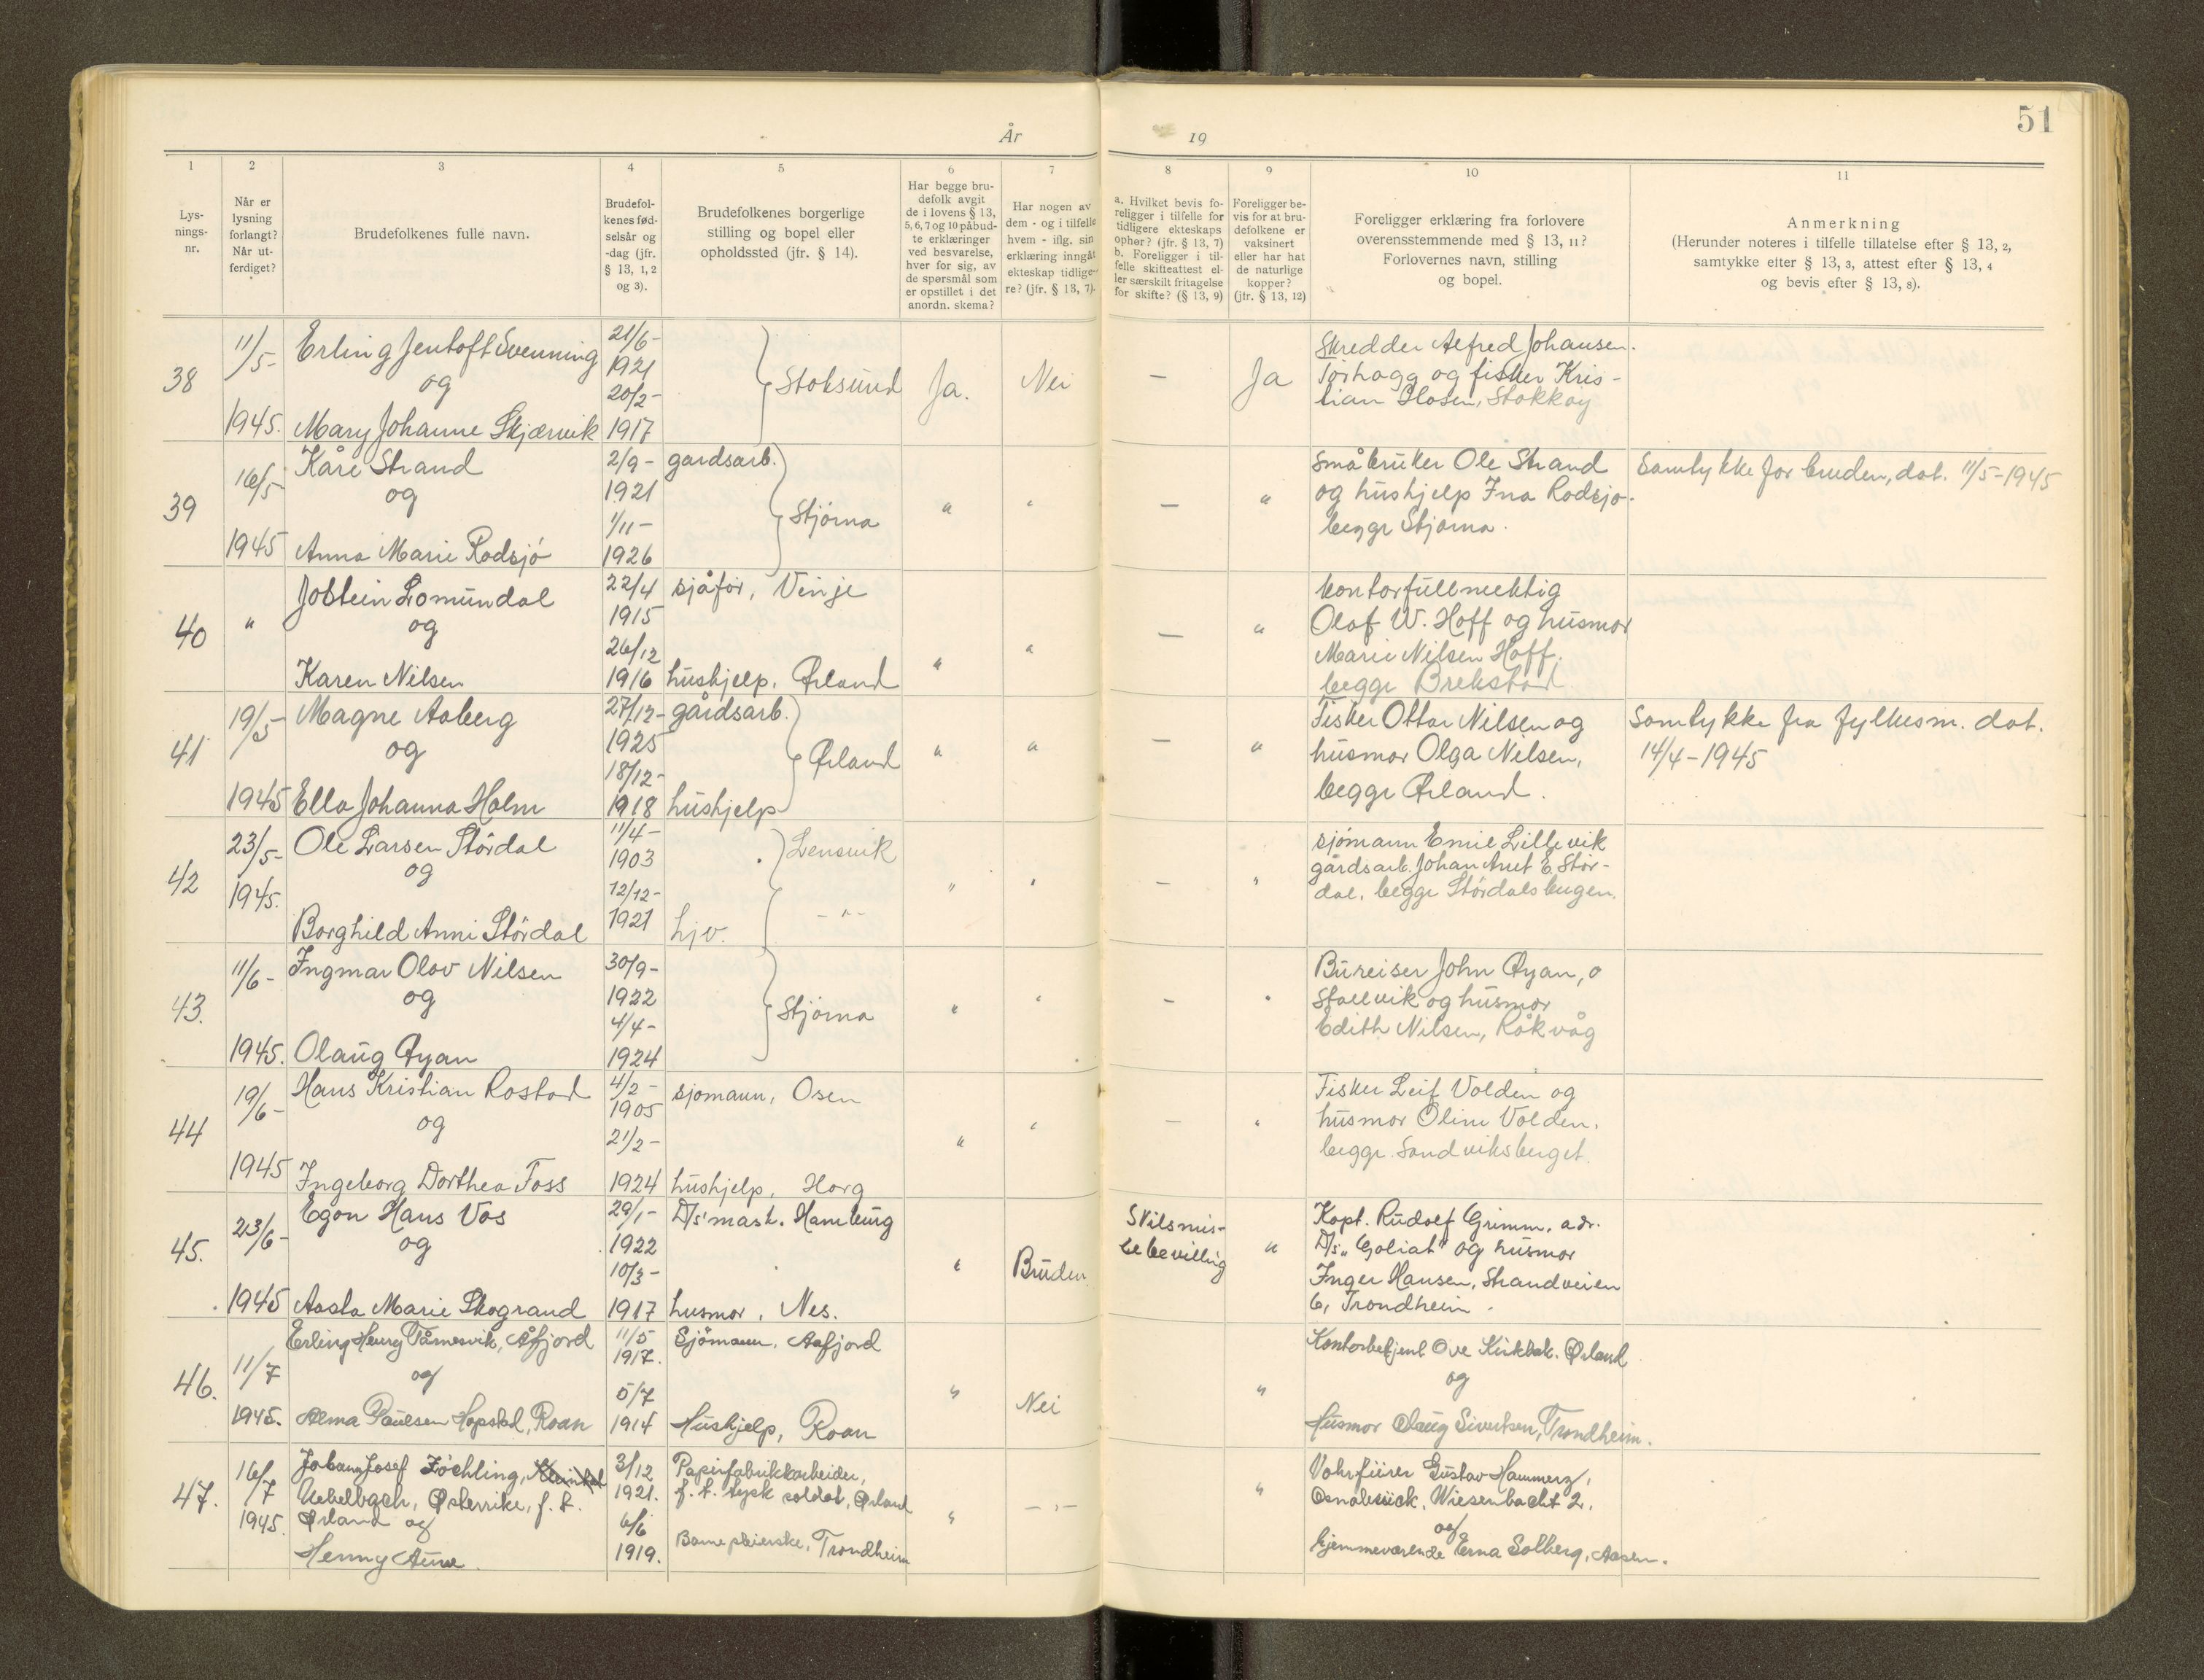 51
År
19
1
2
3
4
5
6
7
8
9
10
11
Lys-
nings-
nr.
Når er
lysning
forlangt?
Når ut-
ferdiget?
Brudefolkenes fulle navn.
Brudefol-
kenes fød-
selsår og
-dag (jfr.
§ 13, 1, 2
og 3).
Brudefolkenes borgerlige
stilling og bopel eller
opholdssted (jfr. § 14).
Har begge bru-
defolk avgit
de i lovens § 13,
5, 6, 7 og 10 påbud-
te erklæringer
ved besvarelse,
hver for sig, av
de spørsmål som
er opstillet i det
anordn. skema?
Har nogen av
dem - og i tilfelle
hvem - iflg. sin
erklæring inngåt
ekteskap tidlige-
re? (jfr. § 13, 7).
a. Hvilket bevis fo-
religger i tilfelle for
tidligere ekteskaps
ophør? (jfr. § 13, 7)
b. Foreligger i til-
felle skifteattest el-
ler særskilt fritagelse
for skifte? (§ 13, 9)
Foreligger be-
vis for at bru-
defolkene er
vaksinert
eller har hat
de naturlige
kopper?
(jfr. § 13, 12)
Foreligger erklæring fra forlovere
overensstemmende med § 13, 11?
Forlovernes navn, stilling
og bopel.
Anmerkning
(Herunder noteres i tilfelle tillatelse efter § 13, 2,
samtykke efter § 13, 3, attest efter § 13, 4
og bevis efter § 13, 8).
38
11/5-
1945.
Erling Jentoft Svenning
og
Mary Johanne Skjærvik
21/6-
1921
20/2-
1917
Stoksund
Ja.
Nei
—
Ja
Skredder Alfred Johansen.
Tørhogg og fisker Kris-
tian Olosen, Stokkøy
39
16/5-
1945
Kåre Strand
og
Anna Marie Rødsjö
2/9-
1921
1/11-
1926
gardsarb.
Stjørna
"
"
—
"
Småbruker Ole Strand
og hushjelp Ina Rødsjø.
begge Stjørna.
Samtykke for bruden, dat. 11/5-1945
40
"
Jostein Lomundal
og
Karen Nilsen
22/4
1915
26/12
1916
sjåfør, Vinje
hushjelp. Ørland
"
"
—
"
kontorfullmektig
Olaf W. Hoff og husmor
Marie Nilsen Hoff.
begge Brekstad
41
19/5-
1945
Magne Aaberg
og
Ella Johanna Holm
27/12-
1925
18/12-
1918
gårdsarb.
Ørland
hushjelp
"
"
—
"
Fisker Ottar Nilsen og
husmor Olga Nilsen,
begge Ørland.
Samtykke fra fylkesm. dat.
14/4-1945
42
23/5-
1945.
Ole Larsen Stördal
og
Borghild Anni Stördal
11/4-
1903
12/12-
1921
Lensvik
hjv.
-"-
"
"
—
"
sjömann Emil Lillevik
gårdsarb. Johan Arnt E. Stör-
dal, begge Stördalsbugen.
43.
11/6-
1945.
Ingmar Olav Nilsen
og
Olaug Øyan
30/9-
1922
4/4-
1924
Stjørna
"
"
—
"
Bureiser John Øyan,
Stallvik og husmor
Edith Nilsen, Råkvåg
44
19/6-
1945
Hans Kristian Rostad
og
Ingeborg Dorthea Foss
4/2-
1905
21/2-
1924
sjømann, Osen
hushjelp, Horg
"
"
—
"
Fisker Leif Volden og
husmor Oline Volden.
begge Sandviksberget.
45.
23/6-
1945
Egon Hans Vos
og
Aasta Marie Skogrand
29/1-
1922
10/3-
1917
D/s' mask. Hamburg
husmor, Nes.
"
Bruden
Skilsmis-
sebevilling
"
Kapt. Rudolf Grimm, adr.
D/s „Goliat" og husmor
Inger Hansen, Strandveien
6, Trondheim.
46.
11/7
1945.
Erling Henry Tårnesvik, Åfjord
og
Alma Paulsen Hopstad, Roan
11/5
1917.
5/7
1914
Sjömann, Aafjord
Hushjelp, Roan
"
Nei
"
Kontorbetjent Ove Kirkbak. Ørland
og
Husmor Olaug Sivertsen, Trondheim.
47.
16/7
1945.
Johann Josef Zöchling,
Uebelbach, Østerrike, f. t.
Ørland og
Henny Aune.
3/12
1921.
6/6
1919.
Papirfabrikkarbeider,
f. t. tysk soldat, Ørland
Barnepleierske, Trondheim
"
-"-
"
Gustav Hammerz,
Osnabrück, Wiesenbacht 2.
og
hjemmeværende Erna Solberg, Aasen.